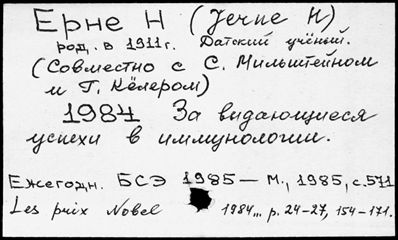 Ерне Н (Jerne N)
род. в 1911г. Датский учёный.
(Совместно с С. Мильштейном
и Г. Кёлером)
1984 За видающиеся
успехи в иммунологии.
Ежегодн. БСЭ 1985 — М., 1985, с.571
Les prix Nobel 1984... p. 24-27, 154-171.